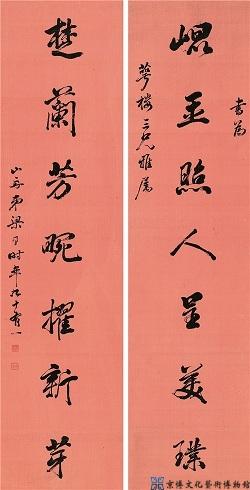 書為
崐玉照人呈美璞
萼樓三兄雅屬
楚蘭芳畹擢新芽
山舟弟梁同書時年九十有一
京博文化藝術博物館